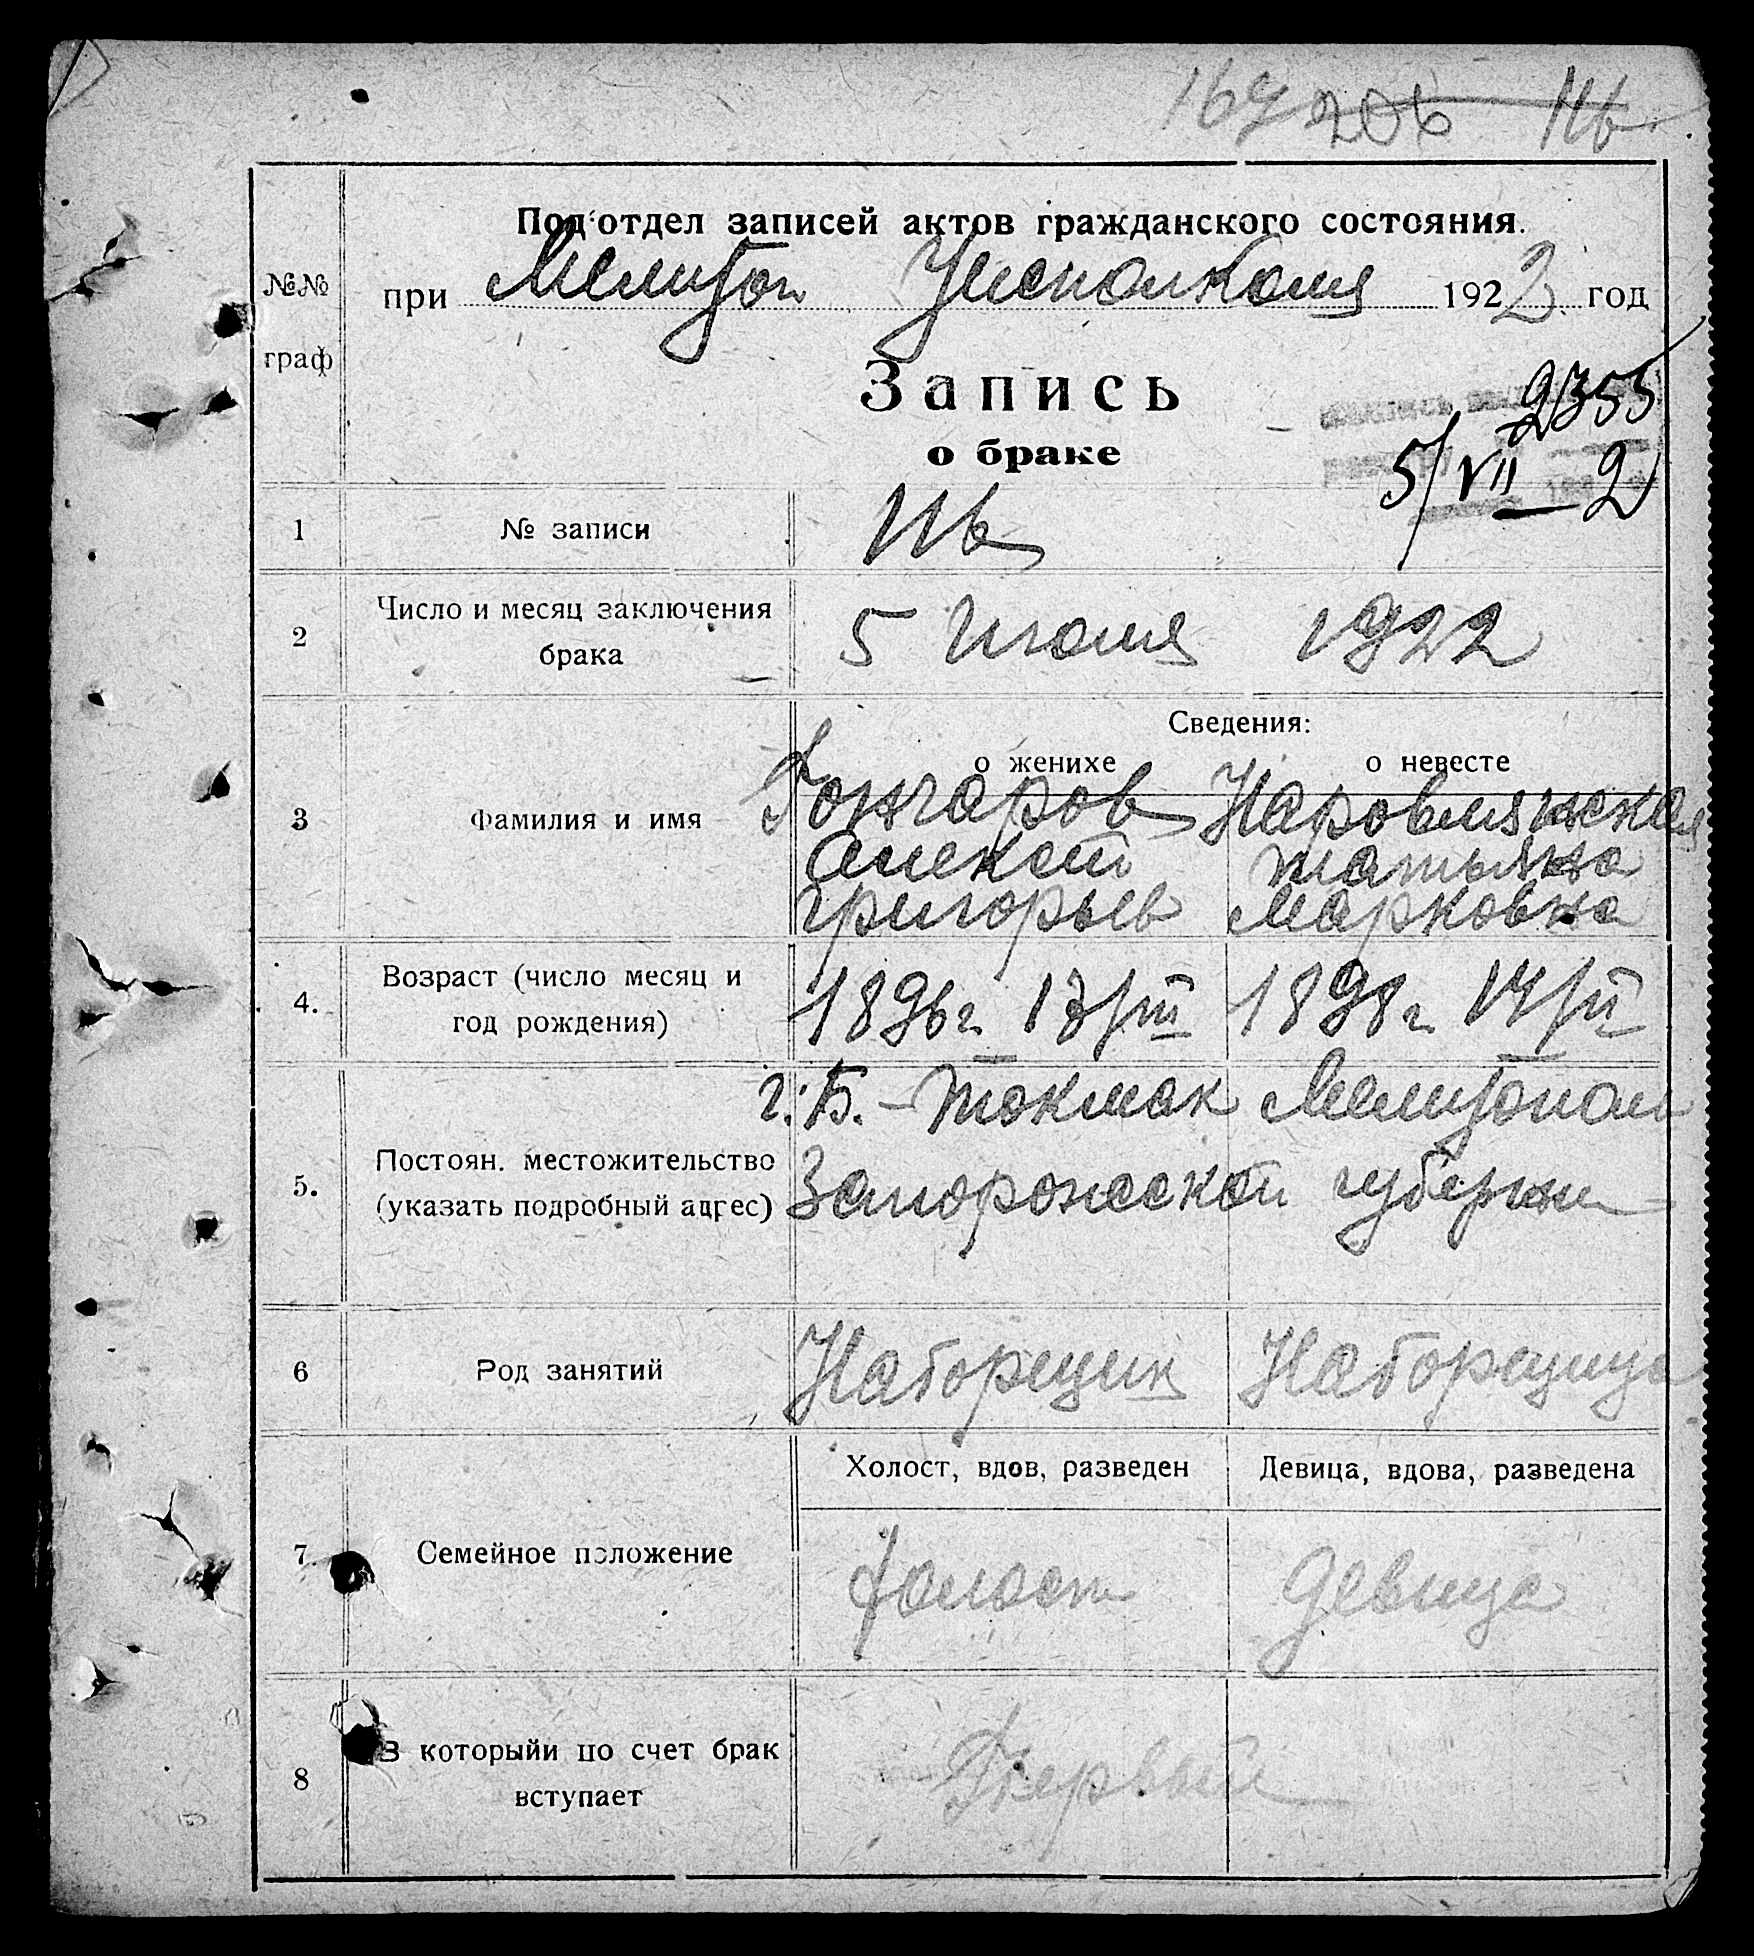 169 206 116
Под'отдел записей актов гражданского состояния.
№№ граф
при Мелитоп Уисполкома 1922 год
Запись
о браке
2355
5/VII — 2
1 № записи 116
2 Число и месяц заключения брака 5 Июля 1922
Сведения:
о женихе о невесте
3 Фамилия и имя Гончаров Наровлянская
Алексей Татьяна
Григорьев Марковна
4. Возраст (число месяц и год рождения) 1896 г. 17/III 1898 г. 14/II
г. Б.-Токмак Мелитополь
5. Постоян. местожительство (указать подробный адрес) Запорожской губернии
6 Род занятий Наборщик Наборщица
Холост, вдов, разведен Девица, вдова, разведена
7 Семейное положение Холост Девица
8 В которыйи по счет брак вступает Первый